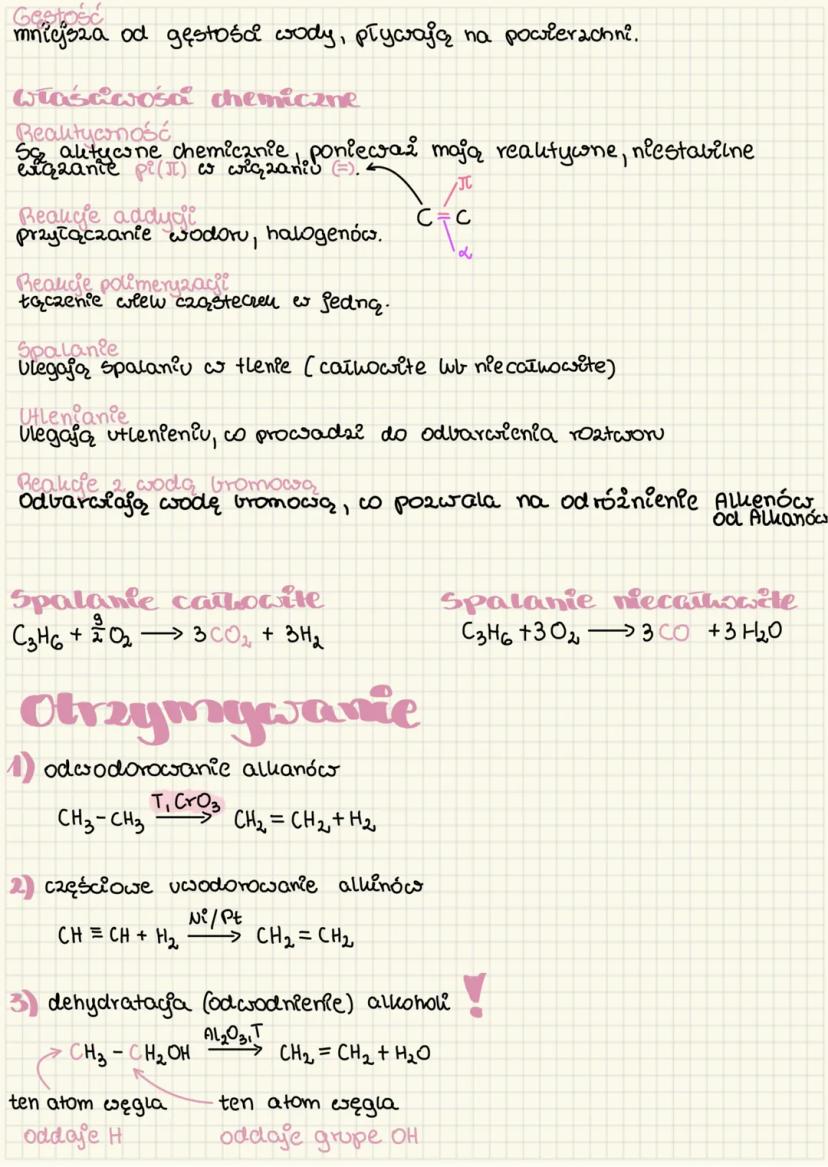 Gęstość
mniejsza od gęstości wody, pływają na powierzchni.
Właściwości chemiczne
Reaktywność
Są aktywne chemicznie, ponieważ mają reaktywne, niestabilne
wiązanie pi(π) w wiązaniu (=).
π
C=C
α
Reakcje addycji
przyłączanie wodoru, halogenów.
Reakcje polimeryzacji
łączenie wielu cząsteczek w jedną.
Spalanie
Ulegają spalaniu w tlenie (całkowite lub niecałkowite)
Utlenianie
Ulegają utlenieniu, co prowadzi do odbarwienia roztworu
Reakcje z wodą bromową
Odbarwiają wodę bromową, co pozwala na odróżnienie Alkenów
od Alkanów
Spalanie całkowite
Spalanie niecałkowite
C₃H₆ + 9/2 O₂ → 3CO₂ + 3H₂
C₃H₆ +3O₂ → 3CO +3H₂O
Otrzymywanie
1) odwodorowanie alkanów
T, CrO₃
CH₃-CH₃ → CH₂=CH₂+H₂
2) częściowe uwodorowanie alkinów
Ni/Pt
CH≡CH + H₂ → CH₂=CH₂
3) dehydratacja (odwodnienie) alkoholi !
Al₂O₃,T
CH₃-CH₂OH → CH₂=CH₂+H₂O
ten atom węgla
ten atom węgla
oddaje H
oddaje grupe OH